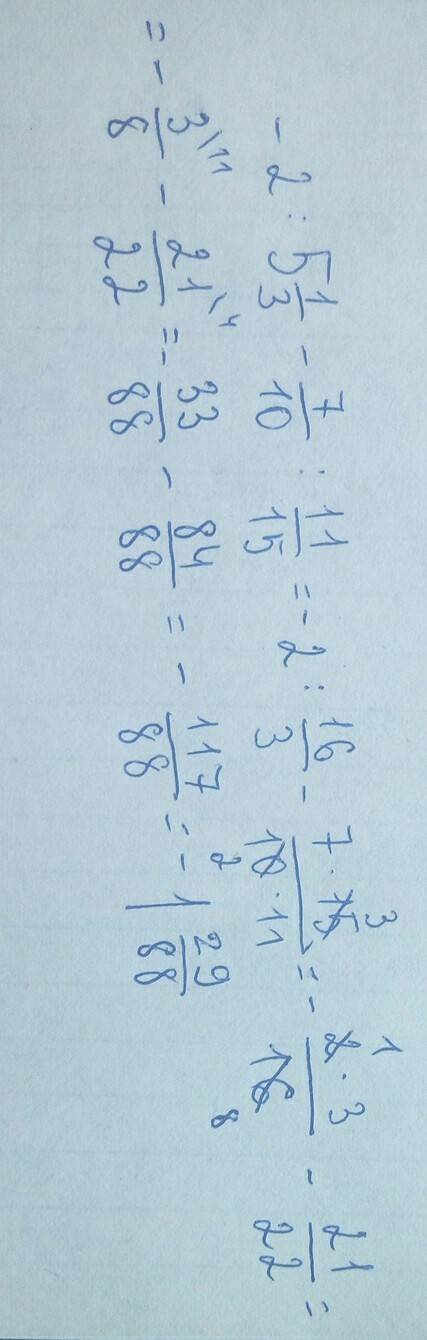 -2 : 5 1/3 - 7/10 : 11/15 = -2 : 16/3 - 7·15 3/10 2·11 = - 1 2·3/16 8 - 21/22 =
= - 3\11/8 - 21\4/22 = - 33/88 - 84/88 = - 117/88 = - 1 29/88